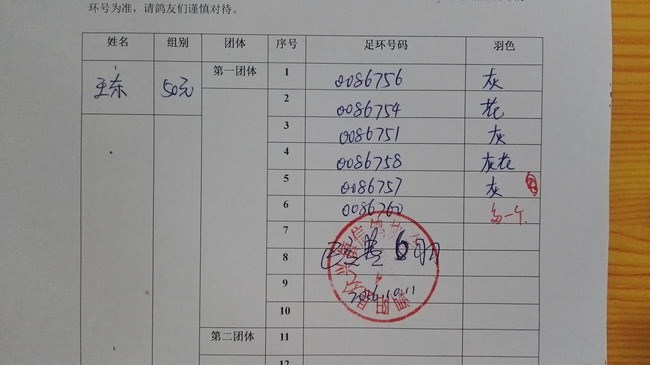 环号为准，请鸽友们谨慎对待。
姓名 组别 团体 序号 足环号码 羽色
王东 50元 第一团体 1 0086756 灰
2 0086754 花
3 0086751 灰
4 0086758 灰花
5 0086757 灰
6 0086760 多一个
7
8 6羽
9
10
第二团体 11
12